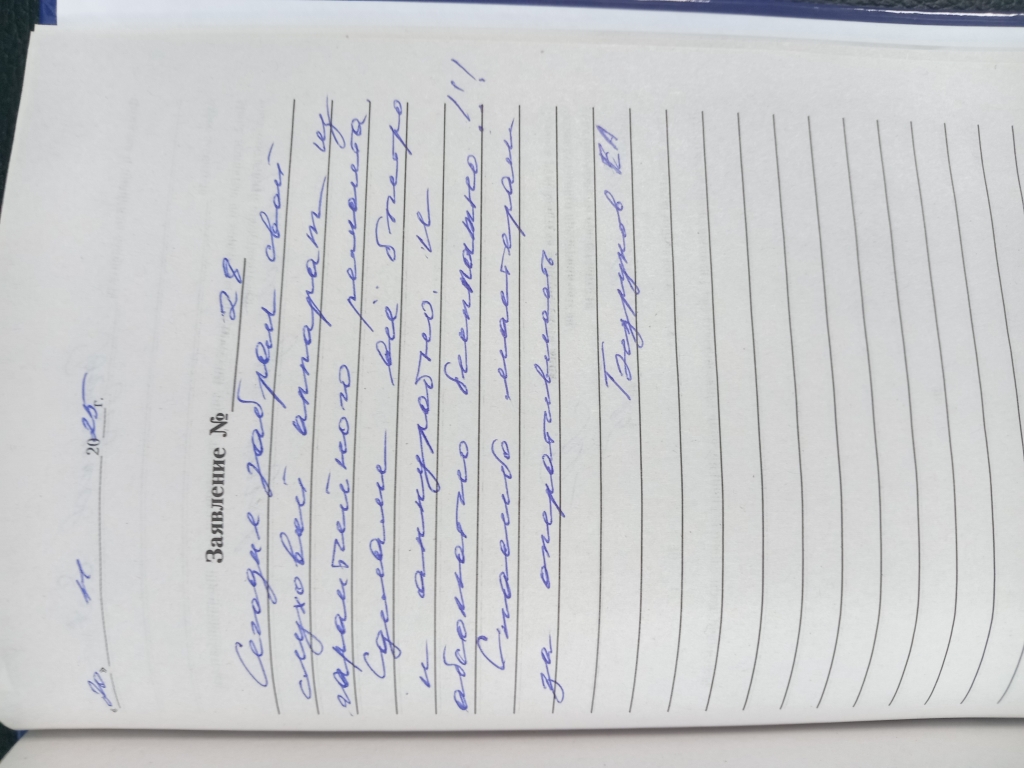 „20" 11 2025 г.
Заявление № 28
Сегодня забрал свой
слуховой аппарат из
гарантийного ремонта
Сделали всё быстро
и аккуратно. И
абсолютно бесплатно!!!
Спасибо мастерам
за оперативность